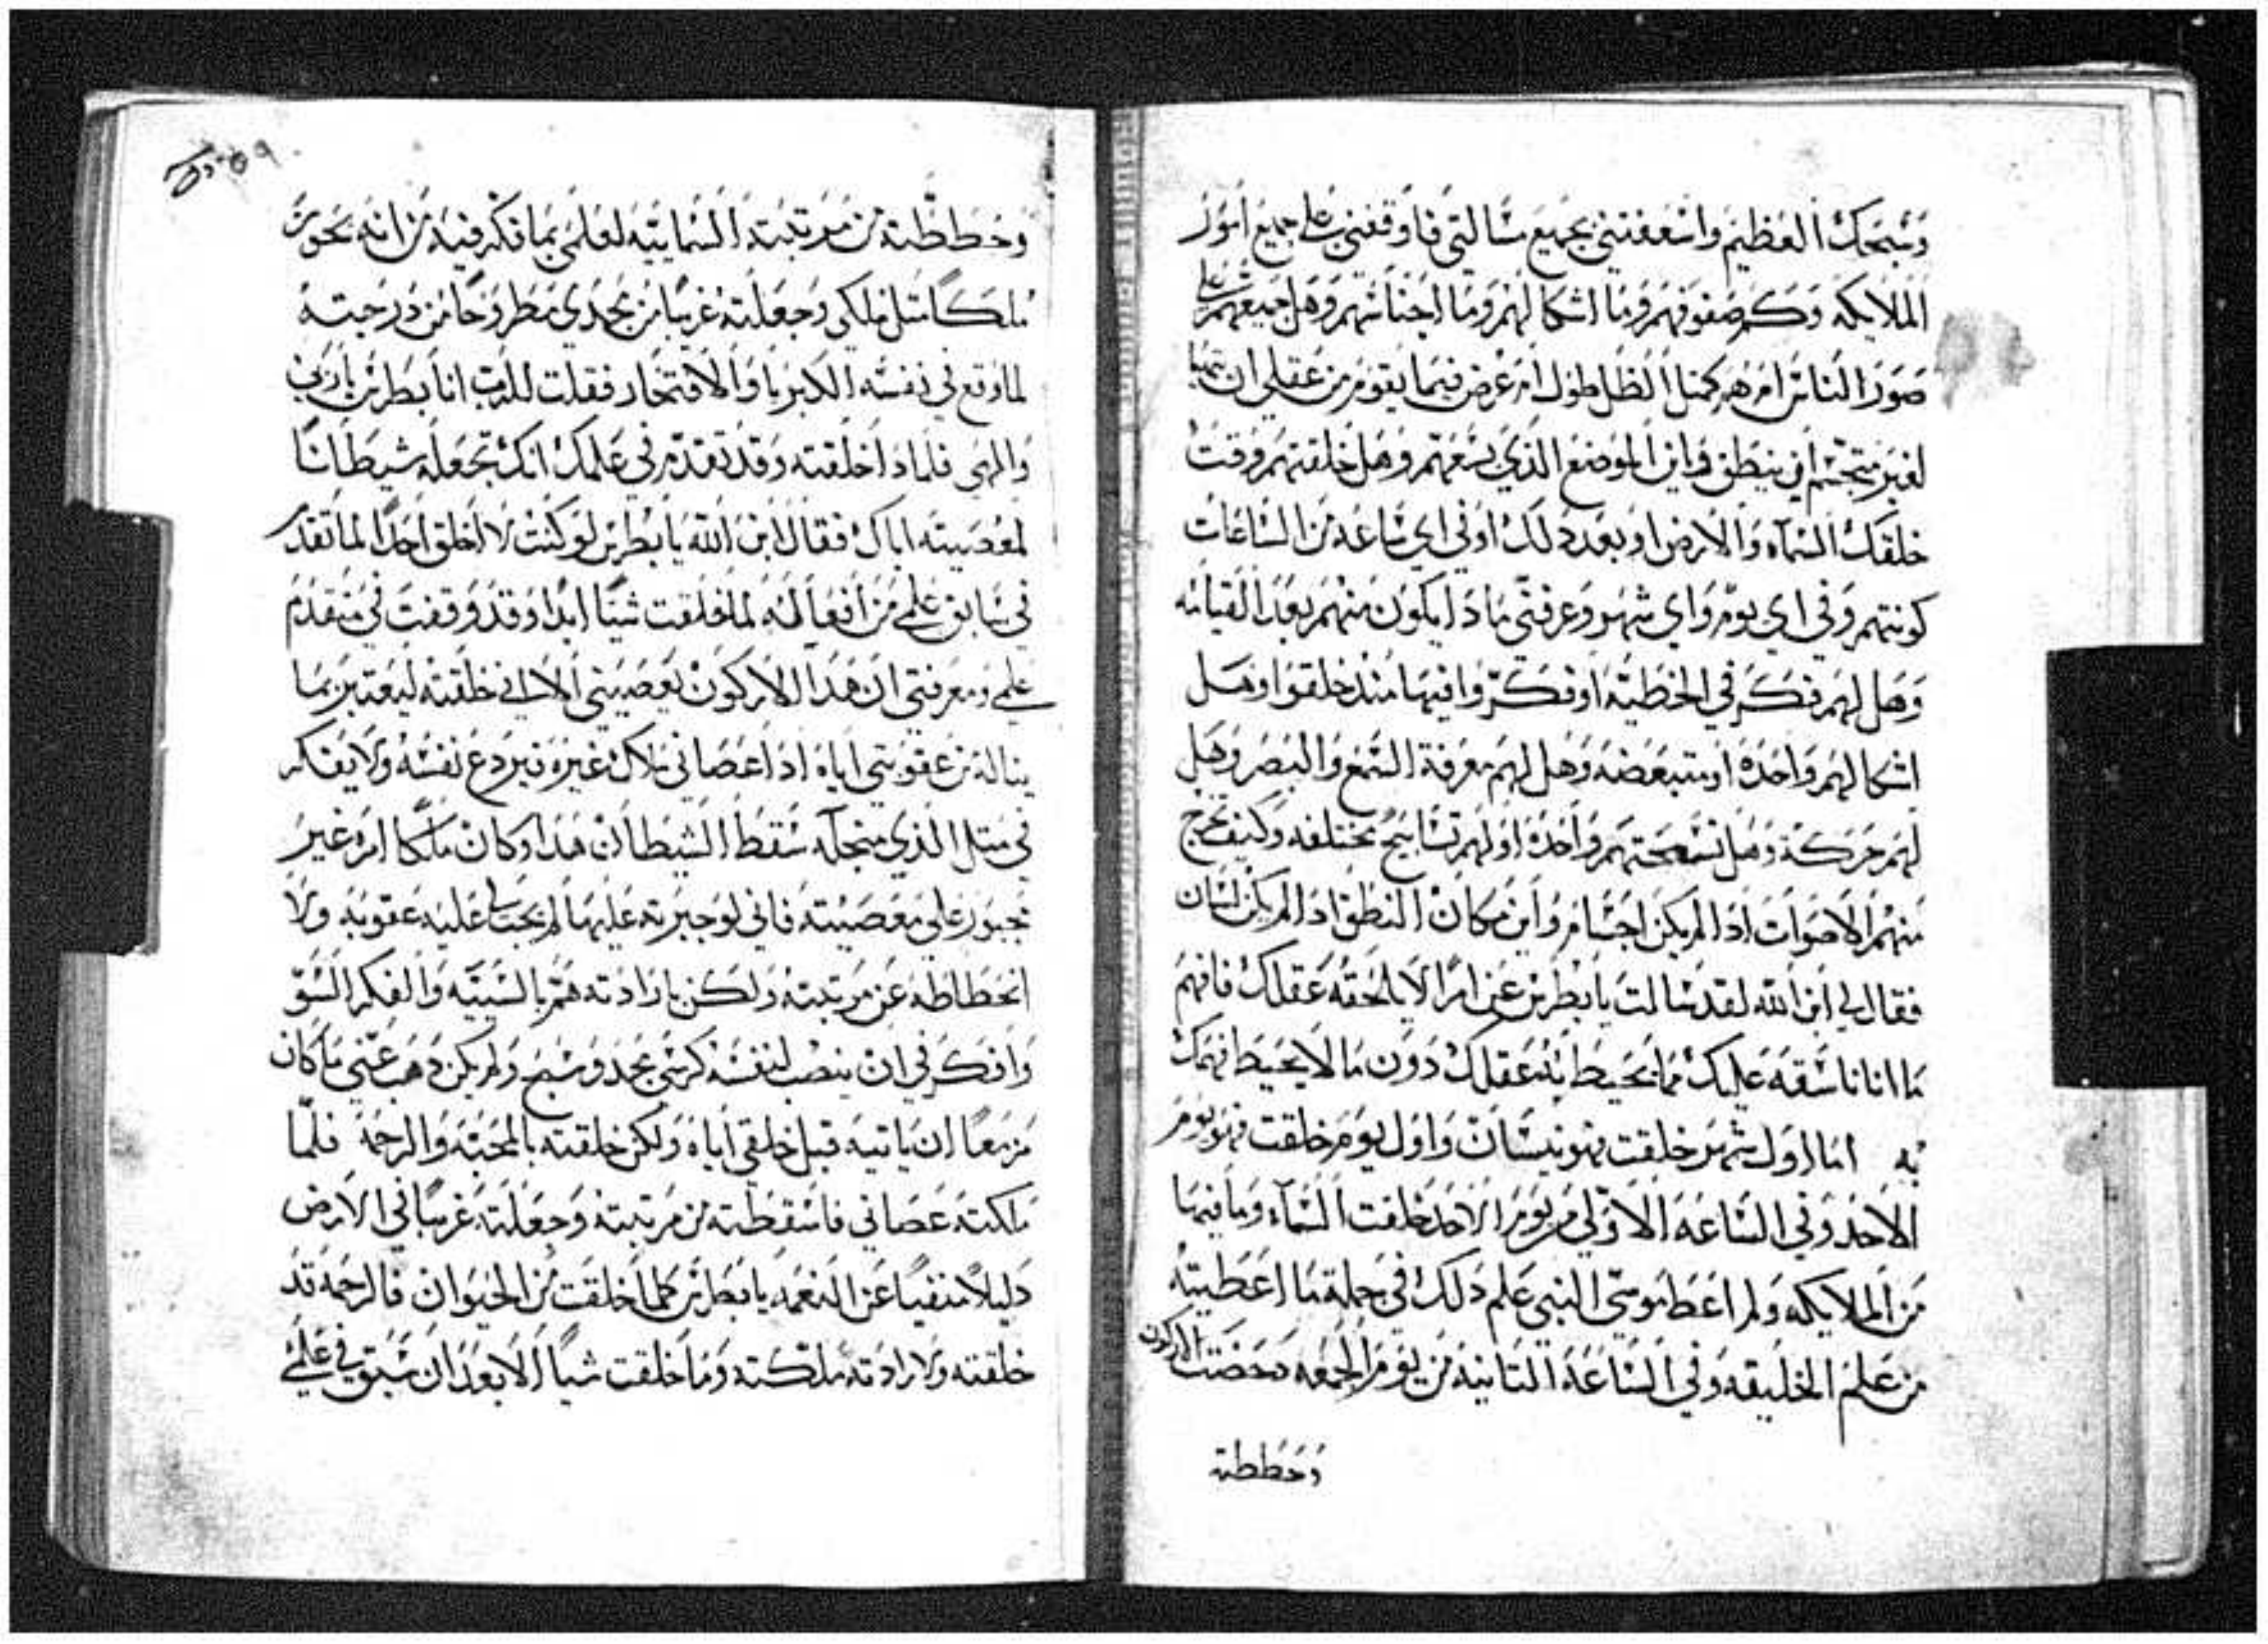 وتسبحك العظيم واسعفتني بجميع مسالتي فاوقفني على جميع امور
الملايكه وكم صفوفهم وما اشكالهم وما اجناسهم وهل جميعهم على
صور الناس ام هم كمثل الظل طول ام عرض فيما يقوم من عقلي ان
لغير متجسم ان ينطق واين الموضع الذي يسعهم وهل خلقتهم وقت
خلقك السمآء والارض او بعد ذلك او في اي ساعه من الساعات
كونتهم وفي اي يوم واي شهر وعرفني ماذا يكون منهم بعد القيامه
وهل لهم فكر في الخطيه او فكروا فيها منذ خلقوا وهل
اشكالهم واحده او متبعضه وهل لهم معرفة السمع والبصر وهل
لهم حركة وهل تسبحتهم واحده او لهم تسابيح مختلفه وكيف تخرج
منهم الاصوات اذا لم يكن اجسام واين مكان النطق اذا لم يكن لسان
فقال لي ابن الله لقد سالت يا بطرس عن امرا لا يلحقه عقلك فافهم
ما انا ناسقه عليك مما يحيط به عقلك دون ما لا يحيط فهمك
به اما اول شهر خلقت فهو نيسان واول يوم خلقت فهو يوم
الاحد وفي الساعه الاولي من يوم الاحد خلقت السماء وما فيها
من الملايكه ولم اعط موسى النبي علم ذلك في جملة ما اعطيته
من علم الخليقه وفي الساعة التانيه من يوم الجمعه دحضت الاركون
وحططته
وحططته من مرتبته السمايية لعلمي بما فكر فيه من انه يحوز
ملكا مثل ملكي وجعلته غريبا من مجدي مطروحا من درجته
لما وقع في نفسه الكبريا والافتخار فقلت للرب انا بطرس يا ربي
والهي فلماذا خلقته وقد تقدم في علمك انك تجعله شيطانا
لمعصيته اياك فقال ابن الله يا بطرس لو كنت لا اخلق احدا لما تقدم
في سابق علمي من افعاله لما خلقت شيا ابدا وقد وقفت في متقدم
علمي ومعرفتي ان هذا الاركون يعصيني الا اني خلقته ليعتبر بما
يناله من عقوبتي اياه اذا عصاني ملاك غيره فيردع نفسه ولا يفكر
في مثل الذي من اجله سقط الشيطان هذا وكان ملكا امره غير
مجبور علي معصيته فاني لو جبرته عليها لم يجب عليه عقوبه ولا
انحطاطه عن مرتبته ولكن بارادته هم بالسييه والفكر السو
وافكر في ان ينصب لنفسه كرسي مجد وسبح ولم يكن ذهب عني ما كان
مزمعا ان ياتيه قبل خلقي اياه ولكن خلقته بالمحبه والرحمة فلما
ملكته عصاني فاسقطته من مرتبته وجعلته غريبا في الارض
دليلا منفيا عن النعمه يا بطرس كلما خلقت من الحيوان فالرحمه قد
خلقته ولارادته ملكته وما خلقت شيا الا بعد ان سبق في علمي